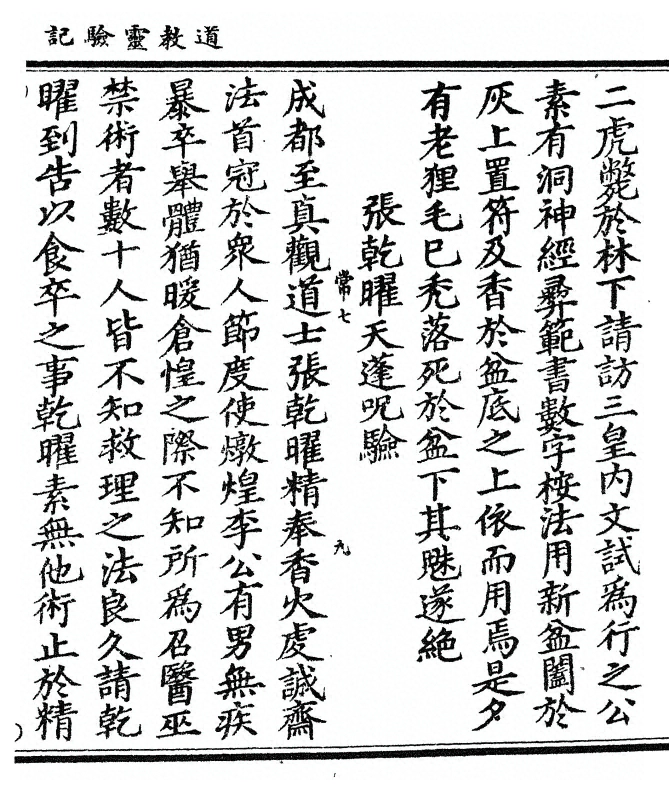 道教靈驗記
二虎斃於林下請訪三皇內文試爲行之公
素有洞神經彛範書數字桉法用新盆闔於
灰上置符及香於盆底之上依而用焉是夕
有老狸毛巳秃落死於盆下其魅遂絕
張乾曜天蓬呪驗
常七
九
成都至真觀道士張乾曜精奉香火虔誠齋
法首冠於衆人節度使燉煌李公有男無疾
暴卒舉體猶暖倉惶之際不知所爲召醫巫
禁術者數十人皆不知救理之法良久請乾
曜到告以食卒之事乾曜素無他術止於精